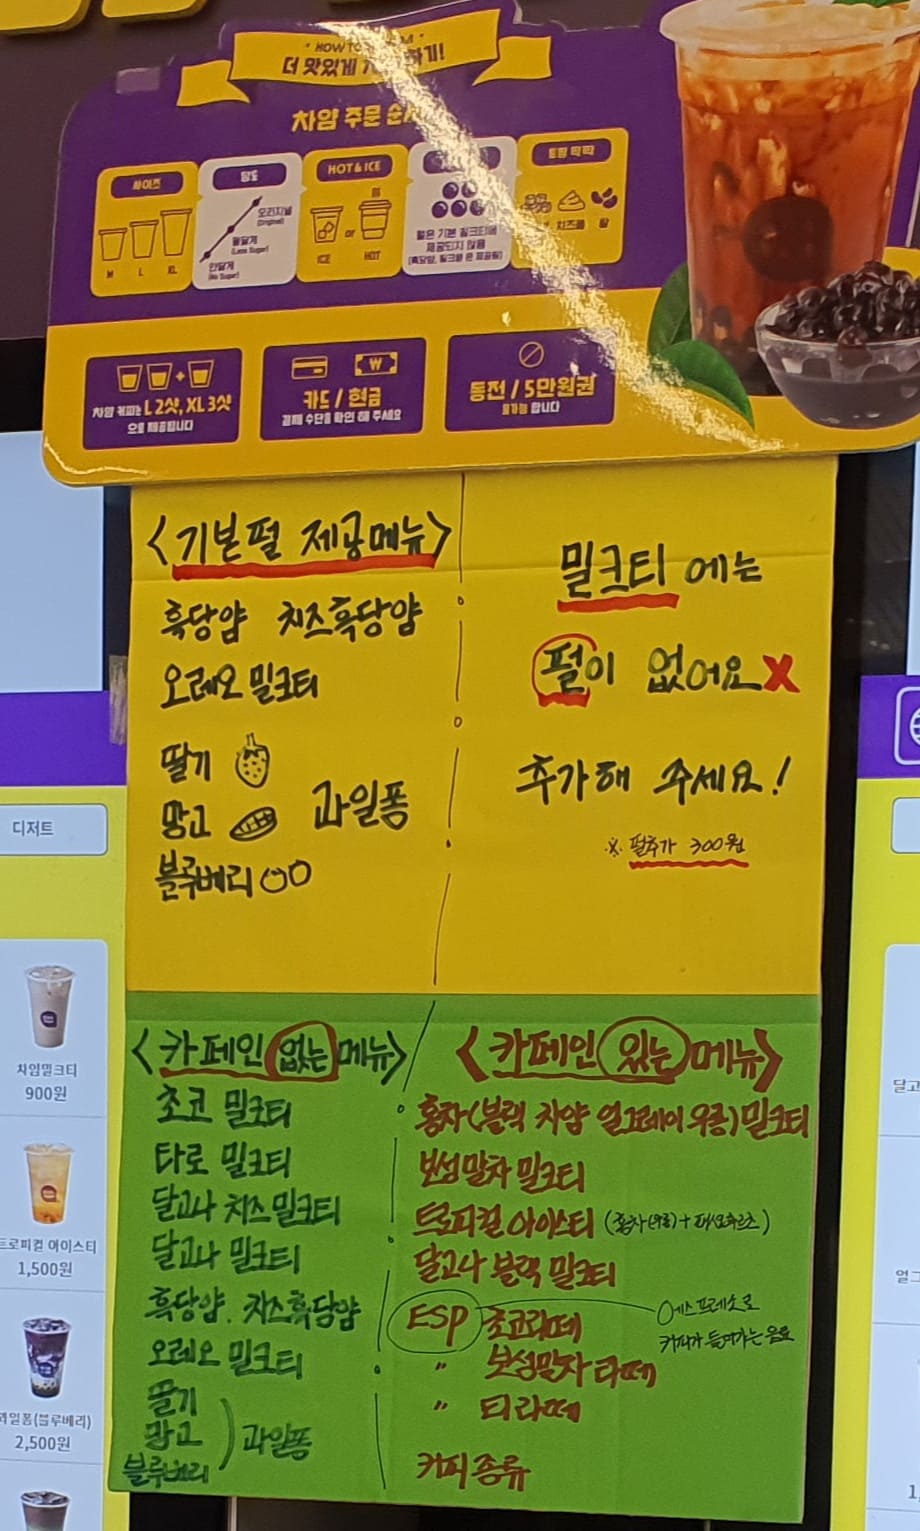 더 맛있게
차얌 주문
사이즈
M L XL
당도
오리지널
(Original)
덜달게
(Less Sugar)
안달게
(No Sugar)
HOT & ICE
ICE
or
HOT
펄은 기본 밀크티에
제공되지 않음
치즈폼
펄
차얌 커피는 L 2샷, XL 3샷
으로 제공됩니다
카드 / 현금
결제 수단을 확인 해 주세요
동전 / 5만원권
불가능 합니다
<기본펄 제공메뉴>
흑당얌 치즈흑당얌
오레오 밀크티
딸기
망고 과일퐁
블루베리
밀크티 에는
펄이 없어요X
추가해 주세요!
※ 펄추가 300원
<카페인 없는 메뉴>
초코 밀크티
타로 밀크티
달고나 치즈 밀크티
달고나 밀크티
흑당얌. 치즈흑당얌
오레오 밀크티
딸기
망고 ) 과일퐁
블루베리
<카페인 있는 메뉴>
홍차(블랙 차얌 얼그레이 우롱) 밀크티
보성말차 밀크티
트로피컬 아이스티
달고나 블랙 밀크티
ESP 초코라떼
에스프레소로
커피가 들어가는 음료
" 보성말차 라떼
" 티라떼
커피 종류
디저트
차얌밀크티
900원
트로피컬 아이스티
1,500원
과일퐁(블루베리)
2,500원
달고
얼그